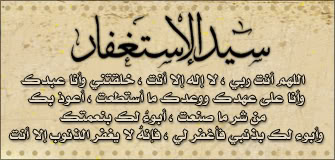 سيد الإستغفار
اللهم أنت ربي ، لا إله إلا أنت ، خلقتني وأنا عبدك
وأنا على عهدك ووعدك ما أستطعت ، أعوذ بك
من شر ما صنعت ، أبوئ لك بنعمتك
وأبوء لك بذنبي فأغفر لي ، فإنه لا يغفر الذنوب إلا أنت